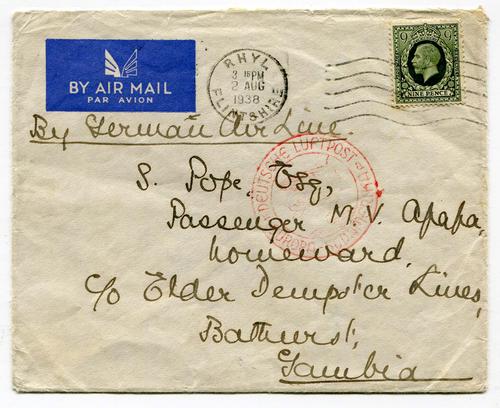 BY AIR MAIL
PAR AVION
RHYL
3 15 PM
2 AUG
1938
FLINTSHIRE
NINE PENCE
By German Air Line.
DEUTSCHE LUFTPOST
EUROPA
S. Pope. Esq,
Passenger M.V. Apapa,
homeward,
c/o Elder Dempster Lines,
Bathurst,
Gambia